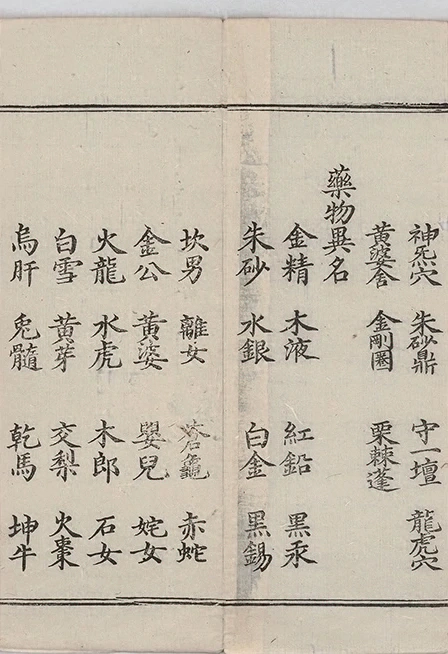 神炁穴 朱砂鼎 守一壇 龍虎穴
黃婆舍 金剛圈 栗棘蓬
藥物異名
金精 木液 紅鉛 黑汞
朱砂 水銀 白金 黑錫
坎男 離女 蒼龜 赤蛇
金公 黃婆 嬰兒 姹女
火龍 水虎 木郎 石女
白雪 黃芽 交梨 火棗
烏肝 兔髓 乾馬 坤牛